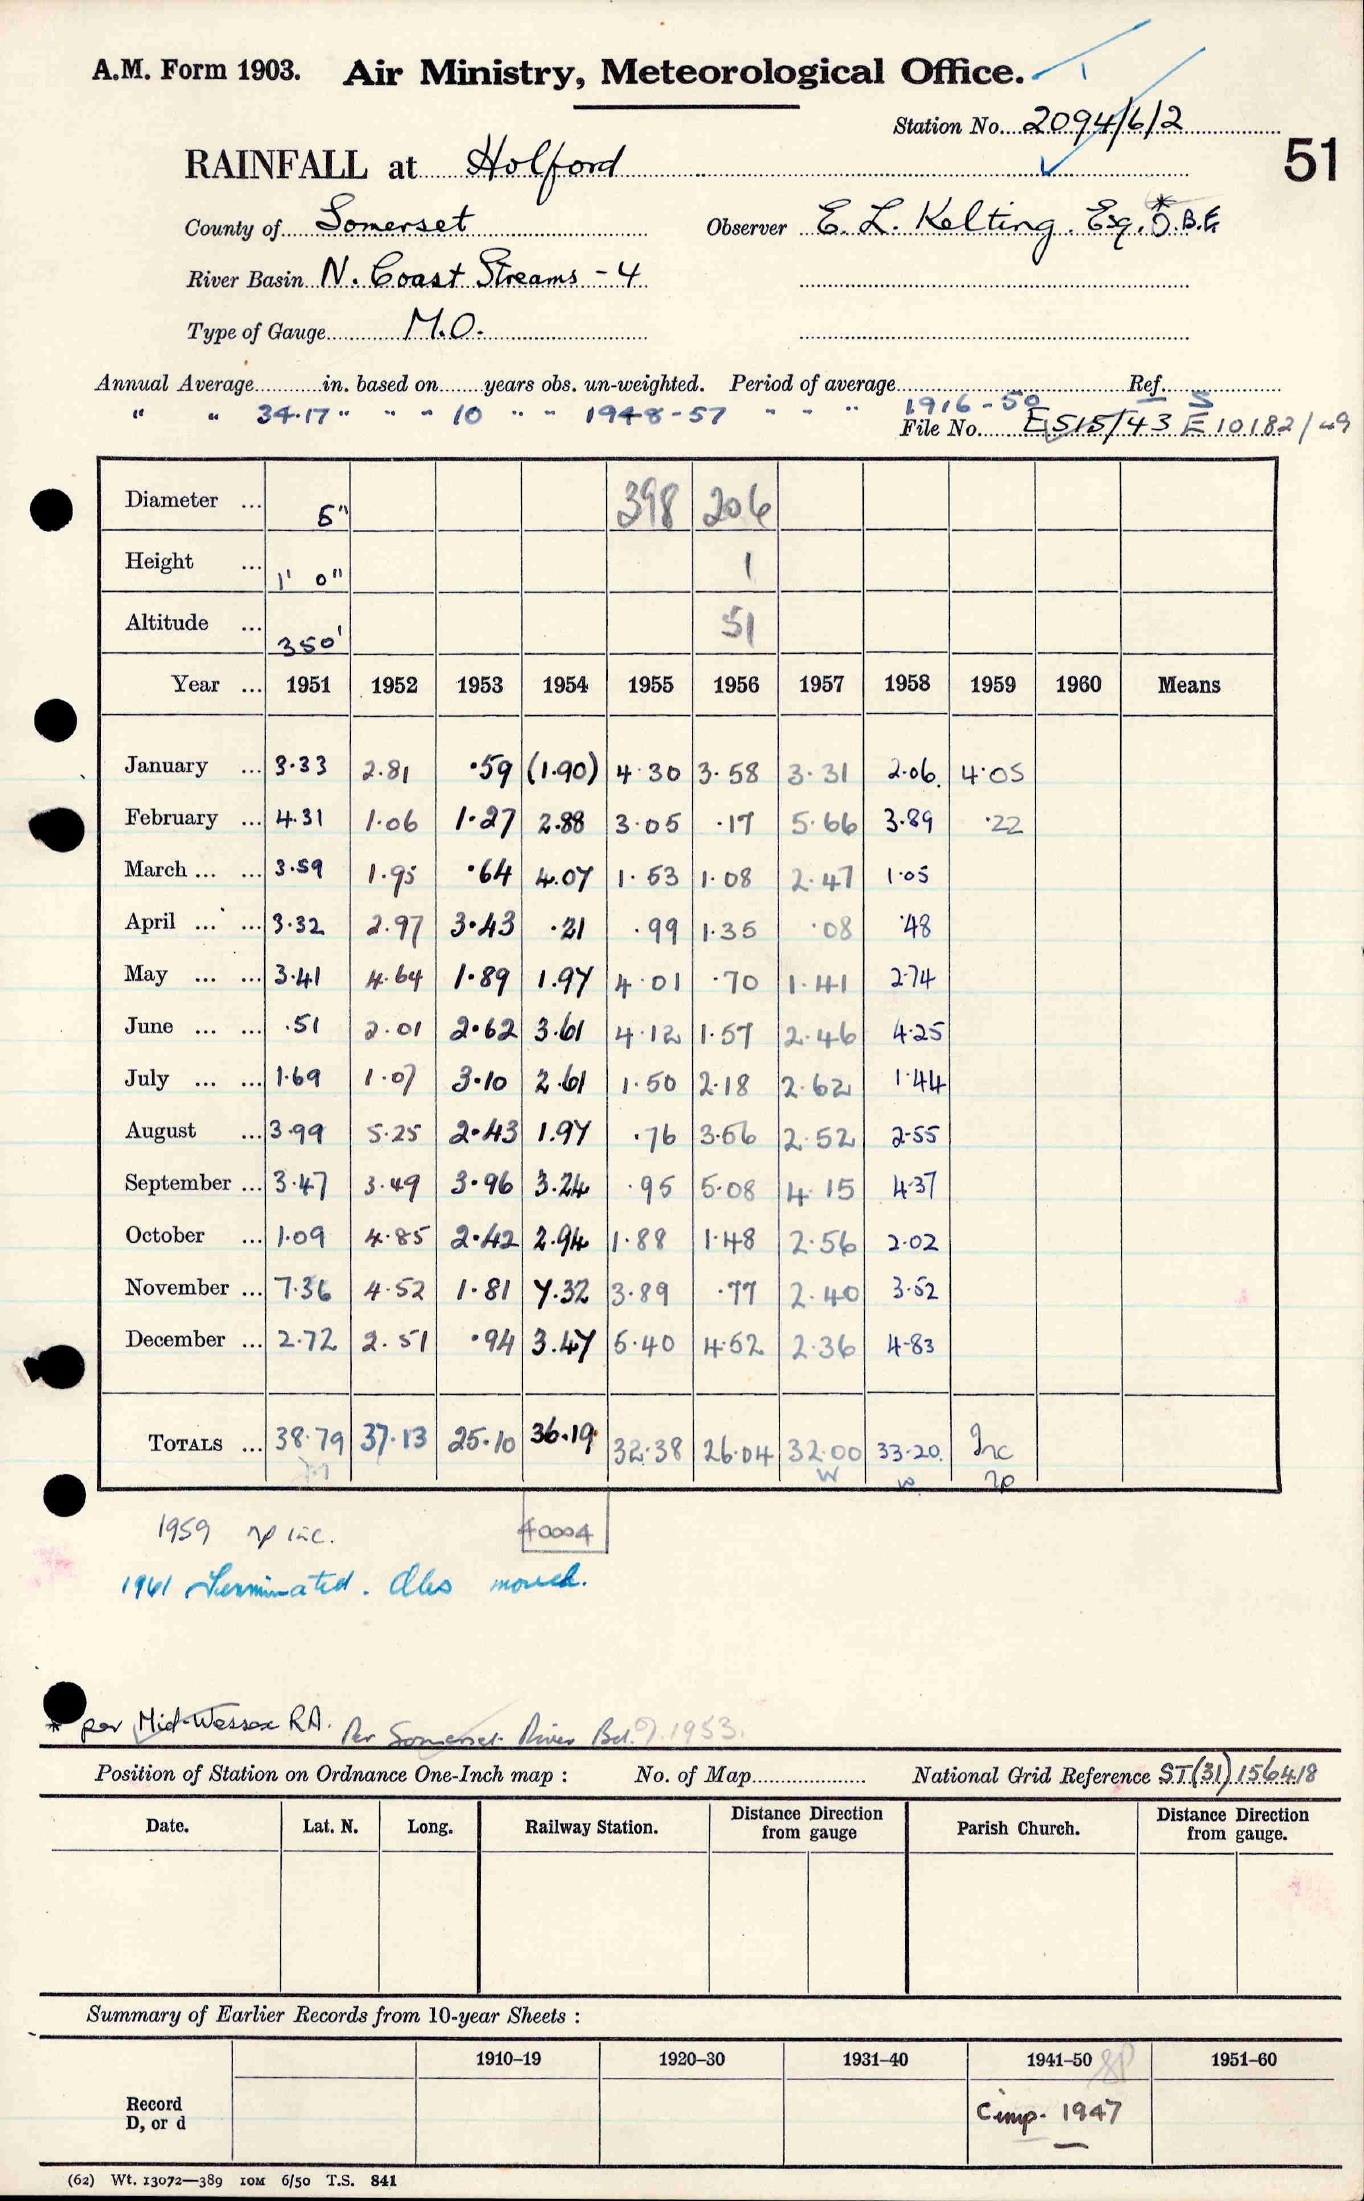 A.M. Form 1903. Air Ministry, Meteorological Office.
Station No. 2094/6/2
51
RAINFALL at Holford
County of Somerset Observer E. L. Kelting. Esq. * O.B.E
River Basin N. Coast Streams - 4
Type of Gauge M.O.
Annual Average in. based on years obs. un-weighted. Period of average Ref.
" " 34.17 " " " 10 " " 1948-57 " " " 1916-50 S
File No. E 515/43 E 10182/49
Diameter ... 5" 398 206
Height ... 1' 0" 1
Altitude ... 350' 51
Year ... 1951 1952 1953 1954 1955 1956 1957 1958 1959 1960 Means
January ... 3.33 2.81 .59 (1.90) 4.30 3.58 3.31 2.06 4.05
February ... 4.31 1.06 1.27 2.88 3.05 .17 5.66 3.89 .22
March ... ... 3.59 1.95 .64 4.07 1.53 1.08 2.47 1.05
April ... ... 3.32 2.97 3.43 .21 .99 1.35 .08 .48
May ... ... 3.41 4.64 1.89 1.97 4.01 .70 1.41 2.74
June ... ... .51 2.01 2.62 3.61 4.12 1.57 2.46 4.25
July ... ... 1.69 1.07 3.10 2.61 1.50 2.18 2.62 1.44
August ... 3.99 5.25 2.43 1.97 .76 3.56 2.52 2.55
September ... 3.47 3.49 3.96 3.24 .95 5.08 4.15 4.37
October ... 1.09 4.85 2.42 2.94 1.88 1.48 2.56 2.02
November ... 7.36 4.52 1.81 7.32 3.89 .77 2.40 3.52
December ... 2.72 2.51 .94 3.47 5.40 4.52 2.36 4.83
TOTALS ... 38.79 37.13 25.10 36.19 32.38 26.04 32.00 33.20 Inc
W W np
1959 np inc. 40004
1961 Terminated. Obs moved.
* per Mid-Wessex RA. Per Somerset River Bd. 7.1953.
Position of Station on Ordnance One-Inch map : No. of Map National Grid Reference ST(31)156418
Date. Lat. N. Long. Railway Station. Distance Direction from gauge Parish Church. Distance Direction from gauge.
Summary of Earlier Records from 10-year Sheets :
1910–19 1920–30 1931–40 1941–50 1951–60
Record
D, or d
Cimp. 1947
(62) Wt. 13072—389 10M 6/50 T.S. 841